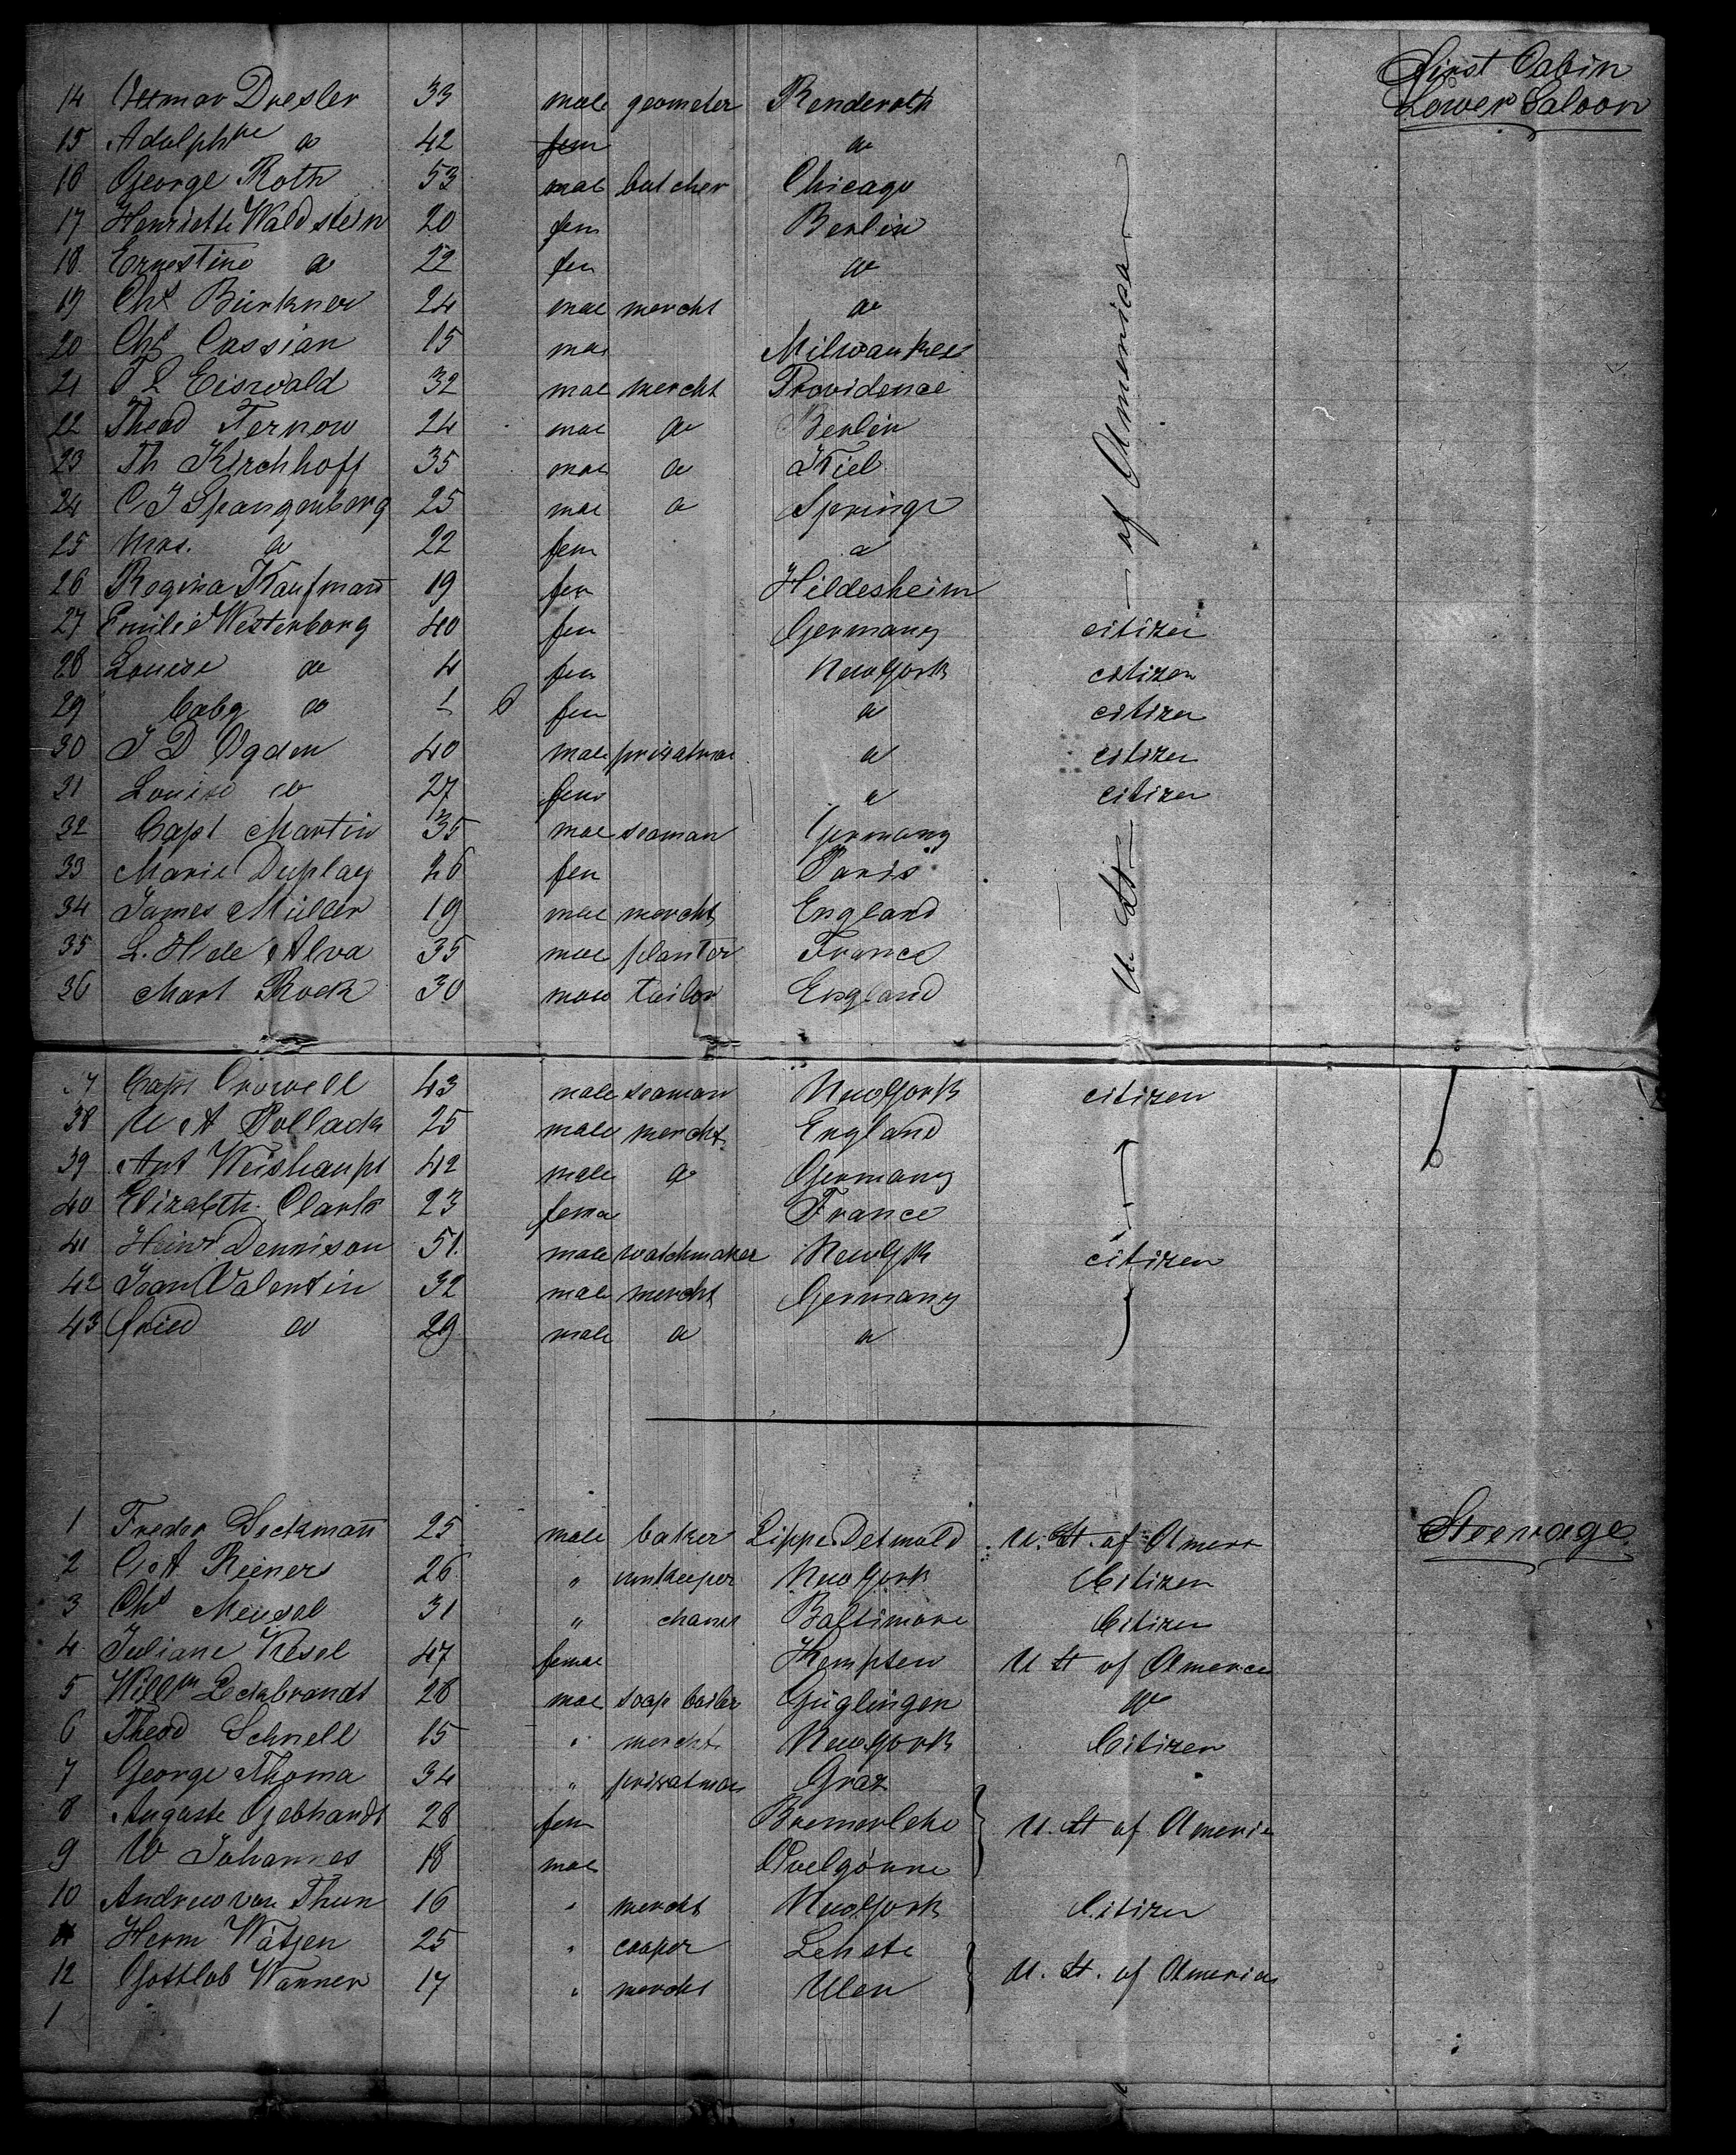 First Cabin
Lower Saloon
14 Ottmar Dresler 33 male geometer Renderoth
15 Adolphine do 42 fem do
16 George Roth 53 mal butcher Chicago
17 Henriette Waldstein 20 fem Berlin
18 Ernestine do 22 fem do
19 Chs Bürkner 24 male mercht do
20 Chs Cassian 15 mal Milwaukee
21 T L Eiswald 32 male mercht Providence
22 Theod Fernow 24 male do Berlin
23 Th Kirchhoff 35 male do Kiel
24 C J Spangenberg 25 male do Springe
25 Mrs. do 22 fem do
26 Regina Kaufmann 19 fem Hildesheim
27 Emilie Westerborg 40 fem Germany citizen
28 Louise do 4 fem New York citizen
29 baby do 6 fem do citizen
30 J D Ogden 40 male privatman do citizen
31 Louise do 27 fem do citizen
32 Capt Martin 35 male seaman Germany
33 Marie Duplay 26 fem Paris
34 James Müller 19 male mercht England
35 L. H de Alva 35 male planter France
36 Mart Rock 30 male tailor England
U. St of America
37 Capt Crowell 43 male seaman New York citizen
38 U A Pollack 25 male mercht England
39 Ant Weishaupt 42 male do Germany
40 Elizabeth Clark 23 fema France
41 Heinr Dennison 51 male watchmaker New Yk citizen
42 Ivan Valentin 32 male mercht Germany
43 Fried do 29 male do do
Steerage
1 Feder Seckmann 25 male baker Lippe Detmold U. St. of Amer
2 C A Reiners 26 " innkeeper New York Citizen
3 Chs Meusel 31 " Baltimore Citizen
4 Juliane Kesel 47 femal Kempten U St of America
5 Willm Leckebrandt 28 male soap boiler Güglingen do
6 Theod Schnell 15 " mercht New York Citizen
7 George Thoma 34 " privatman Graz
8 Auguste Gebhardt 28 fem Bremerlehe U. St of America
9 W Johannes 18 male Ovelgönne
10 Andrew von Thun 16 " mercht New York Citizen
11 Herm Wätjen 25 " cooper Lehste
12 Gottlob Wanner 17 " mercht Ulm U. St. of America
1